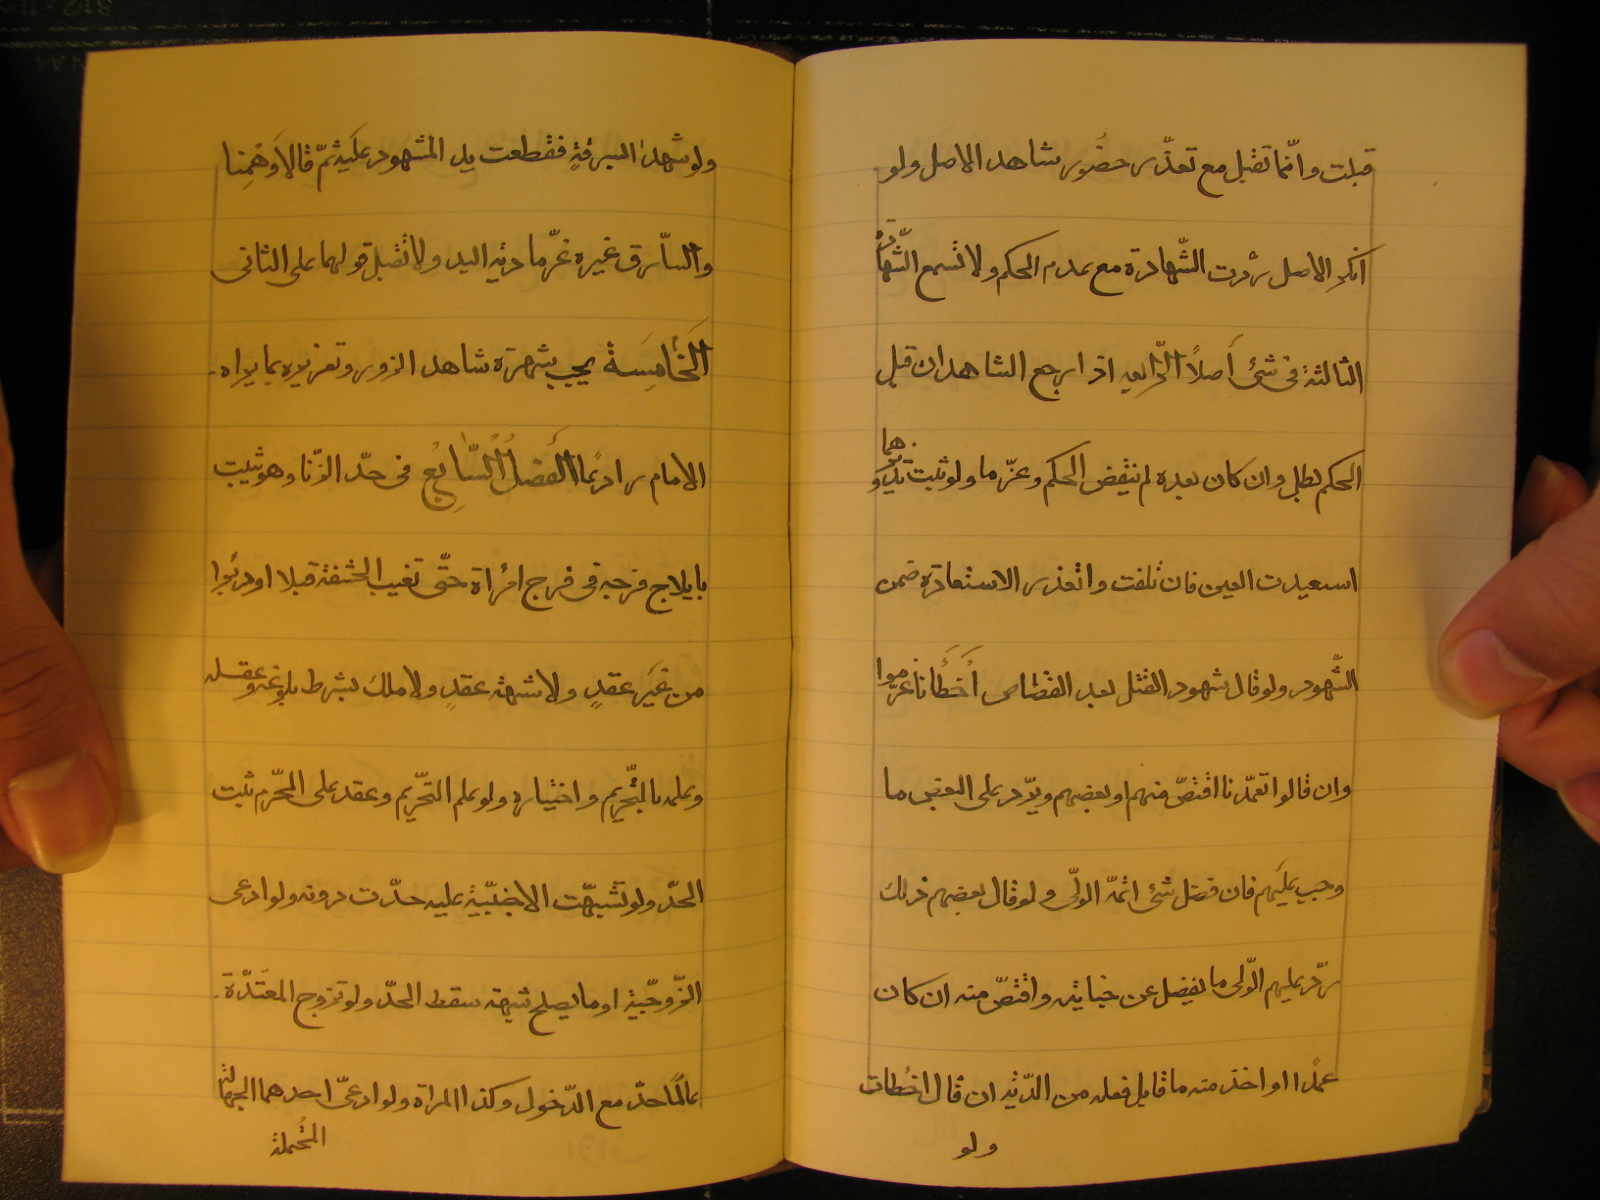 قبلت وانّما تقبل مع تعذّر حضور شاهد الاصل ولو
انكر الاصل ردت الشّهادة مع عدم الحكم ولا تسمع الشّهادة
الثالثة فی شئ اَصلاً الرّابعه اذا رجع الشاهدان قبل
الحكم بطل وان كان بعده لم ینقض الحكم وغرّما ولو ثبت تزویرهما
استعیدت العین فان تلفت و اتعذر الاستعادة ضمن
الشّهود ولو قال شهود القتل بعد القصاص اَخطَأنا غرّموا
وان قالوا تعمّدنا اقتصّ منهم او بعضهم ویردّ علی البعض ما
وجب علیهم فان فضل شئ اتمّه الولّی ولو قال بعضهم ذلك
ردّ علیهم الولّی ما یفضل عن جنایته واقتصّ منه ان كان
عمدًا او اخذ منه ما قابل فعله من الدّیه ان قال اخطات
ولو
ولو شهدا السرقةِ فقطعت ید المشهود علیه ثمّ قالا اَوهَمِنا
والسّارق غیره غرّما دیة الید ولا تقبل قولهما علی الثانی
الخَامِسَة یجب شهرة شاهد الزور وتعزیره بما یراه
الامام رادعًا الفَصلُ السَّابِعُ فی حدّ الزّنا وهو یثبت
بایلاج فرجه فی فرج امرأة حتّی تغیب الحشفة قبلا او دبرًا
من غیَر عقدٍ ولا شبهة عقدٍ ولا ملك بشرط بلوغه وعقله
وعلمه بالتّحریم واختیاره ولو علم التّحریم وعقد علی المحرّم ثبت
الحدّ ولو تشبّهت الاجنبیّة علیه حدّت دونه ولو ادعی
الزّوجّیة او ما یصلح شبهة سقط الحدّ ولو تزوج المعتَدّة
عالمًا حدّ مع الدّخول وكذا المراة ولو ادعیّ احدهما الجهالة
المحُتملة